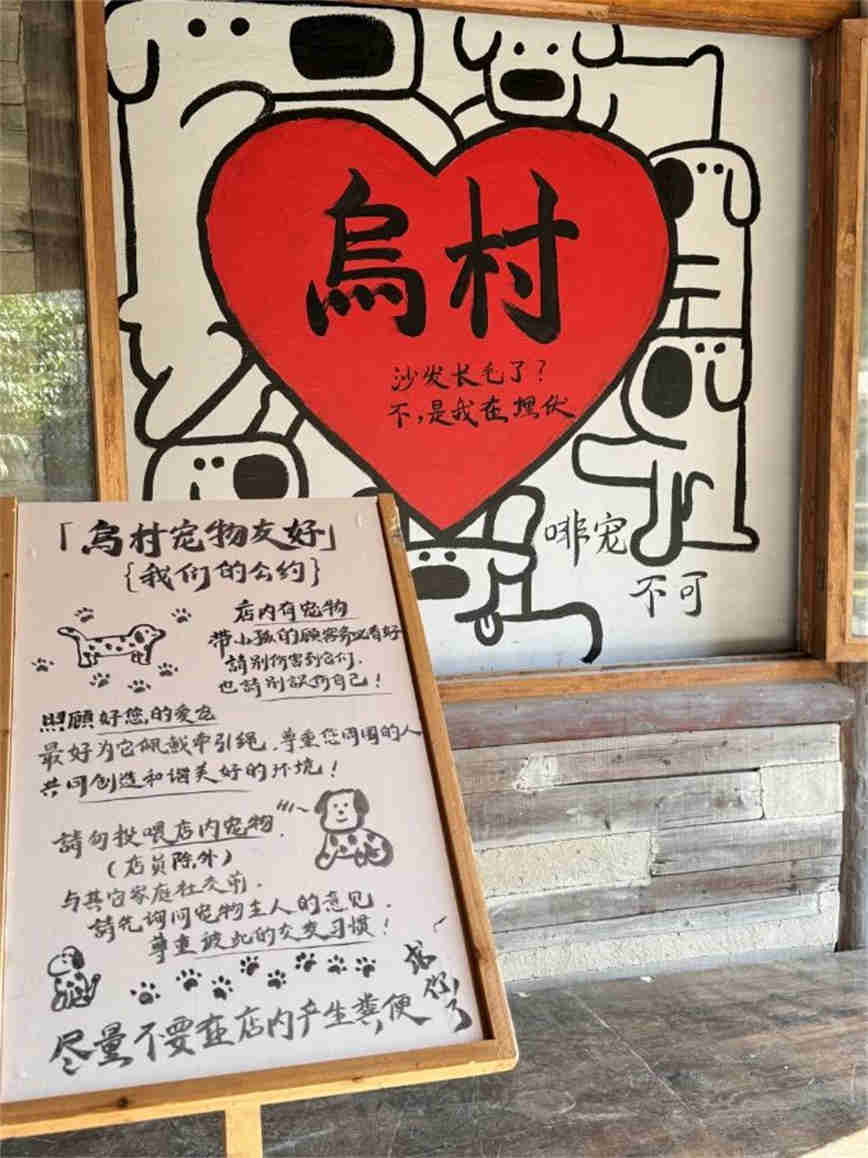 烏村
沙发长毛了？
不，是我在埋伏
啡宠
不可
「烏村宠物友好」
{我们的公约}
店内有宠物
带小孩的顾客务必看好
請别伤害到它们.
也請别误伤自己！
照顾好您的爱宠
最好为它佩戴牵引绳.尊重您周围的人
共同创造和谐美好的环境！
Hi~
請勿投喂店内宠物.
(店員除外)
与其它家庭社交前.
請先询问宠物主人的意见.
尊重彼此的交友习惯！
尽量不要在店内产生粪便
求你了